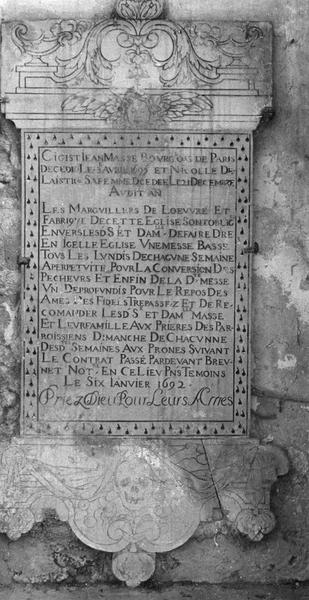 CI GIST IEAN MASSE BOURGOIS DE PARIS
DECEDE LE AVRIL ET NICOLLE DE
LAISTRE SA FEMME DCEDEE LE 21 DECEMBRE
AUDIT AN
LES MARGVILLERS DE LOEUVRE ET
FABRIQUE DE CETTE EGLISE SONT OBLIG
ENVERS LESD S ET DAM. DE FAIRE DIRE
EN ICELLE EGLISE VNE MESSE BASSE
TOUS LES LVNDIS DE CHACVNE SEMAINE
A PERPETVITE POVR LA CONVERSION DES
PECHEVRS ET EN FIN DE LA D. MESSE
VN DE PROFVNDIS POVR LE REPOS DES
AMES DES FIDELS TREPASSEZ ET DE RE-
COMANDER LESD S ET DAM MASSE
ET LEVR FAMILLE AVX PRIERES DES PAR-
ROISSIENS DIMANCHE DE CHACVNNE
DESD SEMAINES AUX PRONES SVIVANT
LE CONTRAT PASSÉ PARDEVANT BREV-
NET NOT. EN CE LIEV PNS TEMOINS
LE SIX IANVIER 1692.
Priez Dieu Pour Leurs Ames